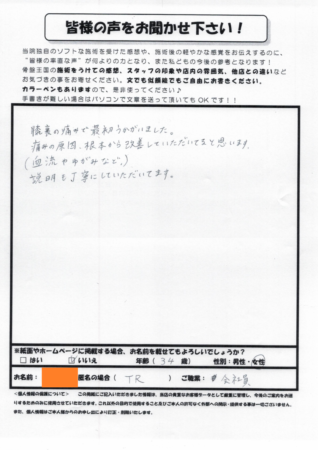 皆様の声をお聞かせ下さい！
当明独自のソフトな施術を受けた感想や、施術後の軽やかな感覚をお伝えするのに、
"皆様の率直な声"が何よりの力となり、また私どもの今後の参考となります！
骨盤王国の施術をうけての感想、スタッフの印象や店内の雰囲気、他店との違いなど
お気づきの事をお寄せください。文でも似顔絵でもご自由にお書きください。
カラーペンもありますので、是非使ってください♪
手書きが難しい場合はパソコンで文章を送って頂いてもOKです！！
膝裏の痛みで最初うかがいました。
痛みの原因、根本から改善していただいてると思います。
(血流や手がみなど。)
説明も丁寧にしていただいてます。
※紙面やホームページに掲載する場合、お名前を載せてもよろしいでしょうか？
□はい ☑いいえ 年齢（34歳） 性別：男性・女性
お名前： 匿名の場合（TR） ご職業 会社員
＜個人情報の保護について＞